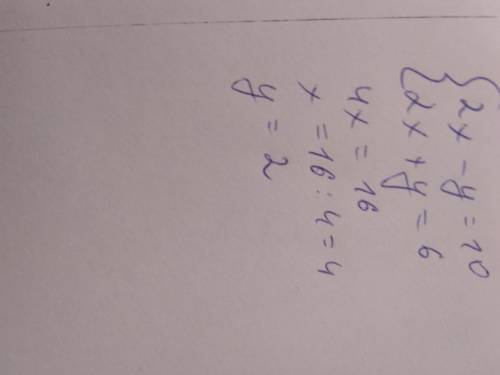 { 2x - y = 10
2x + y = 6
4x = 16
x = 16 : 4 = 4
y = 2